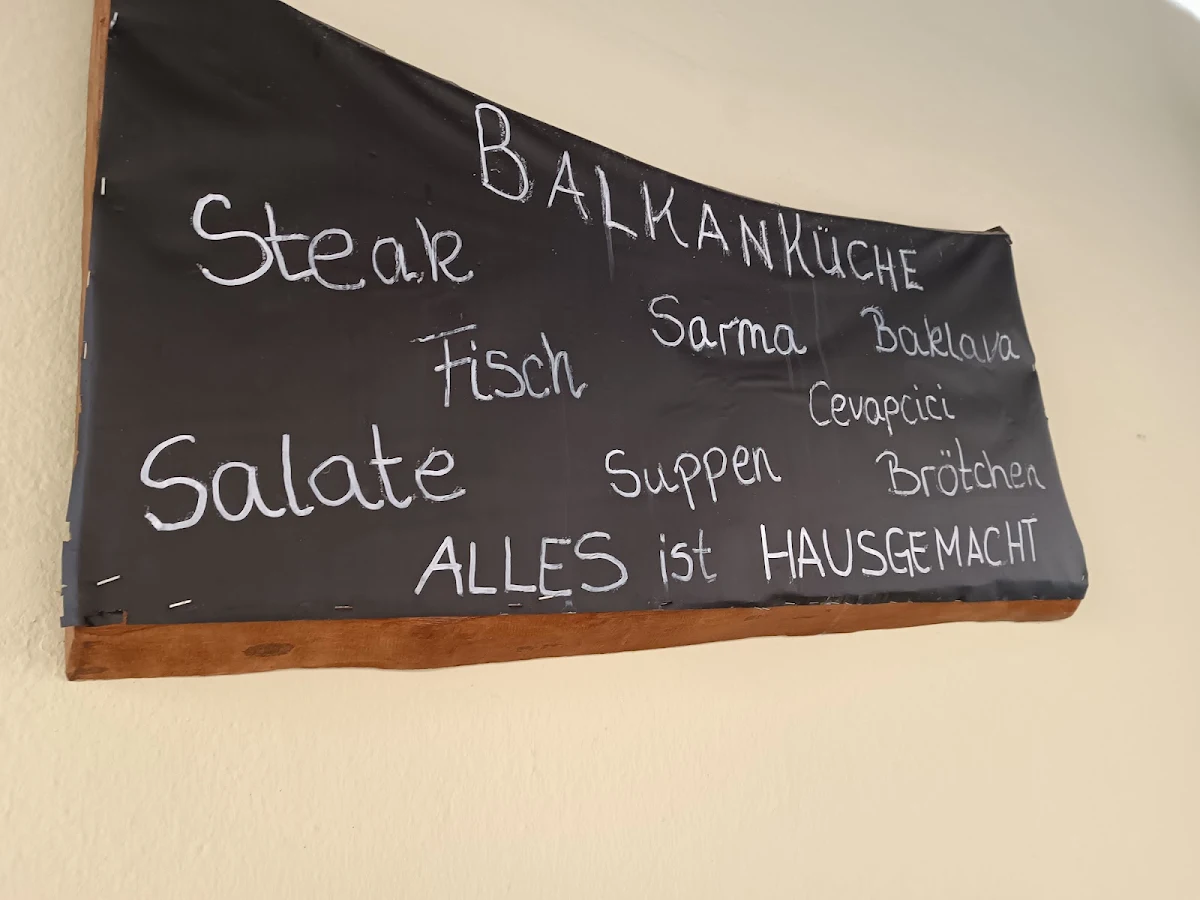 BALKANKÜCHE
Steak
Sarma Baklava
Fisch
Cevapcici
Salate Suppen Brötchen
ALLES ist HAUSGEMACHT